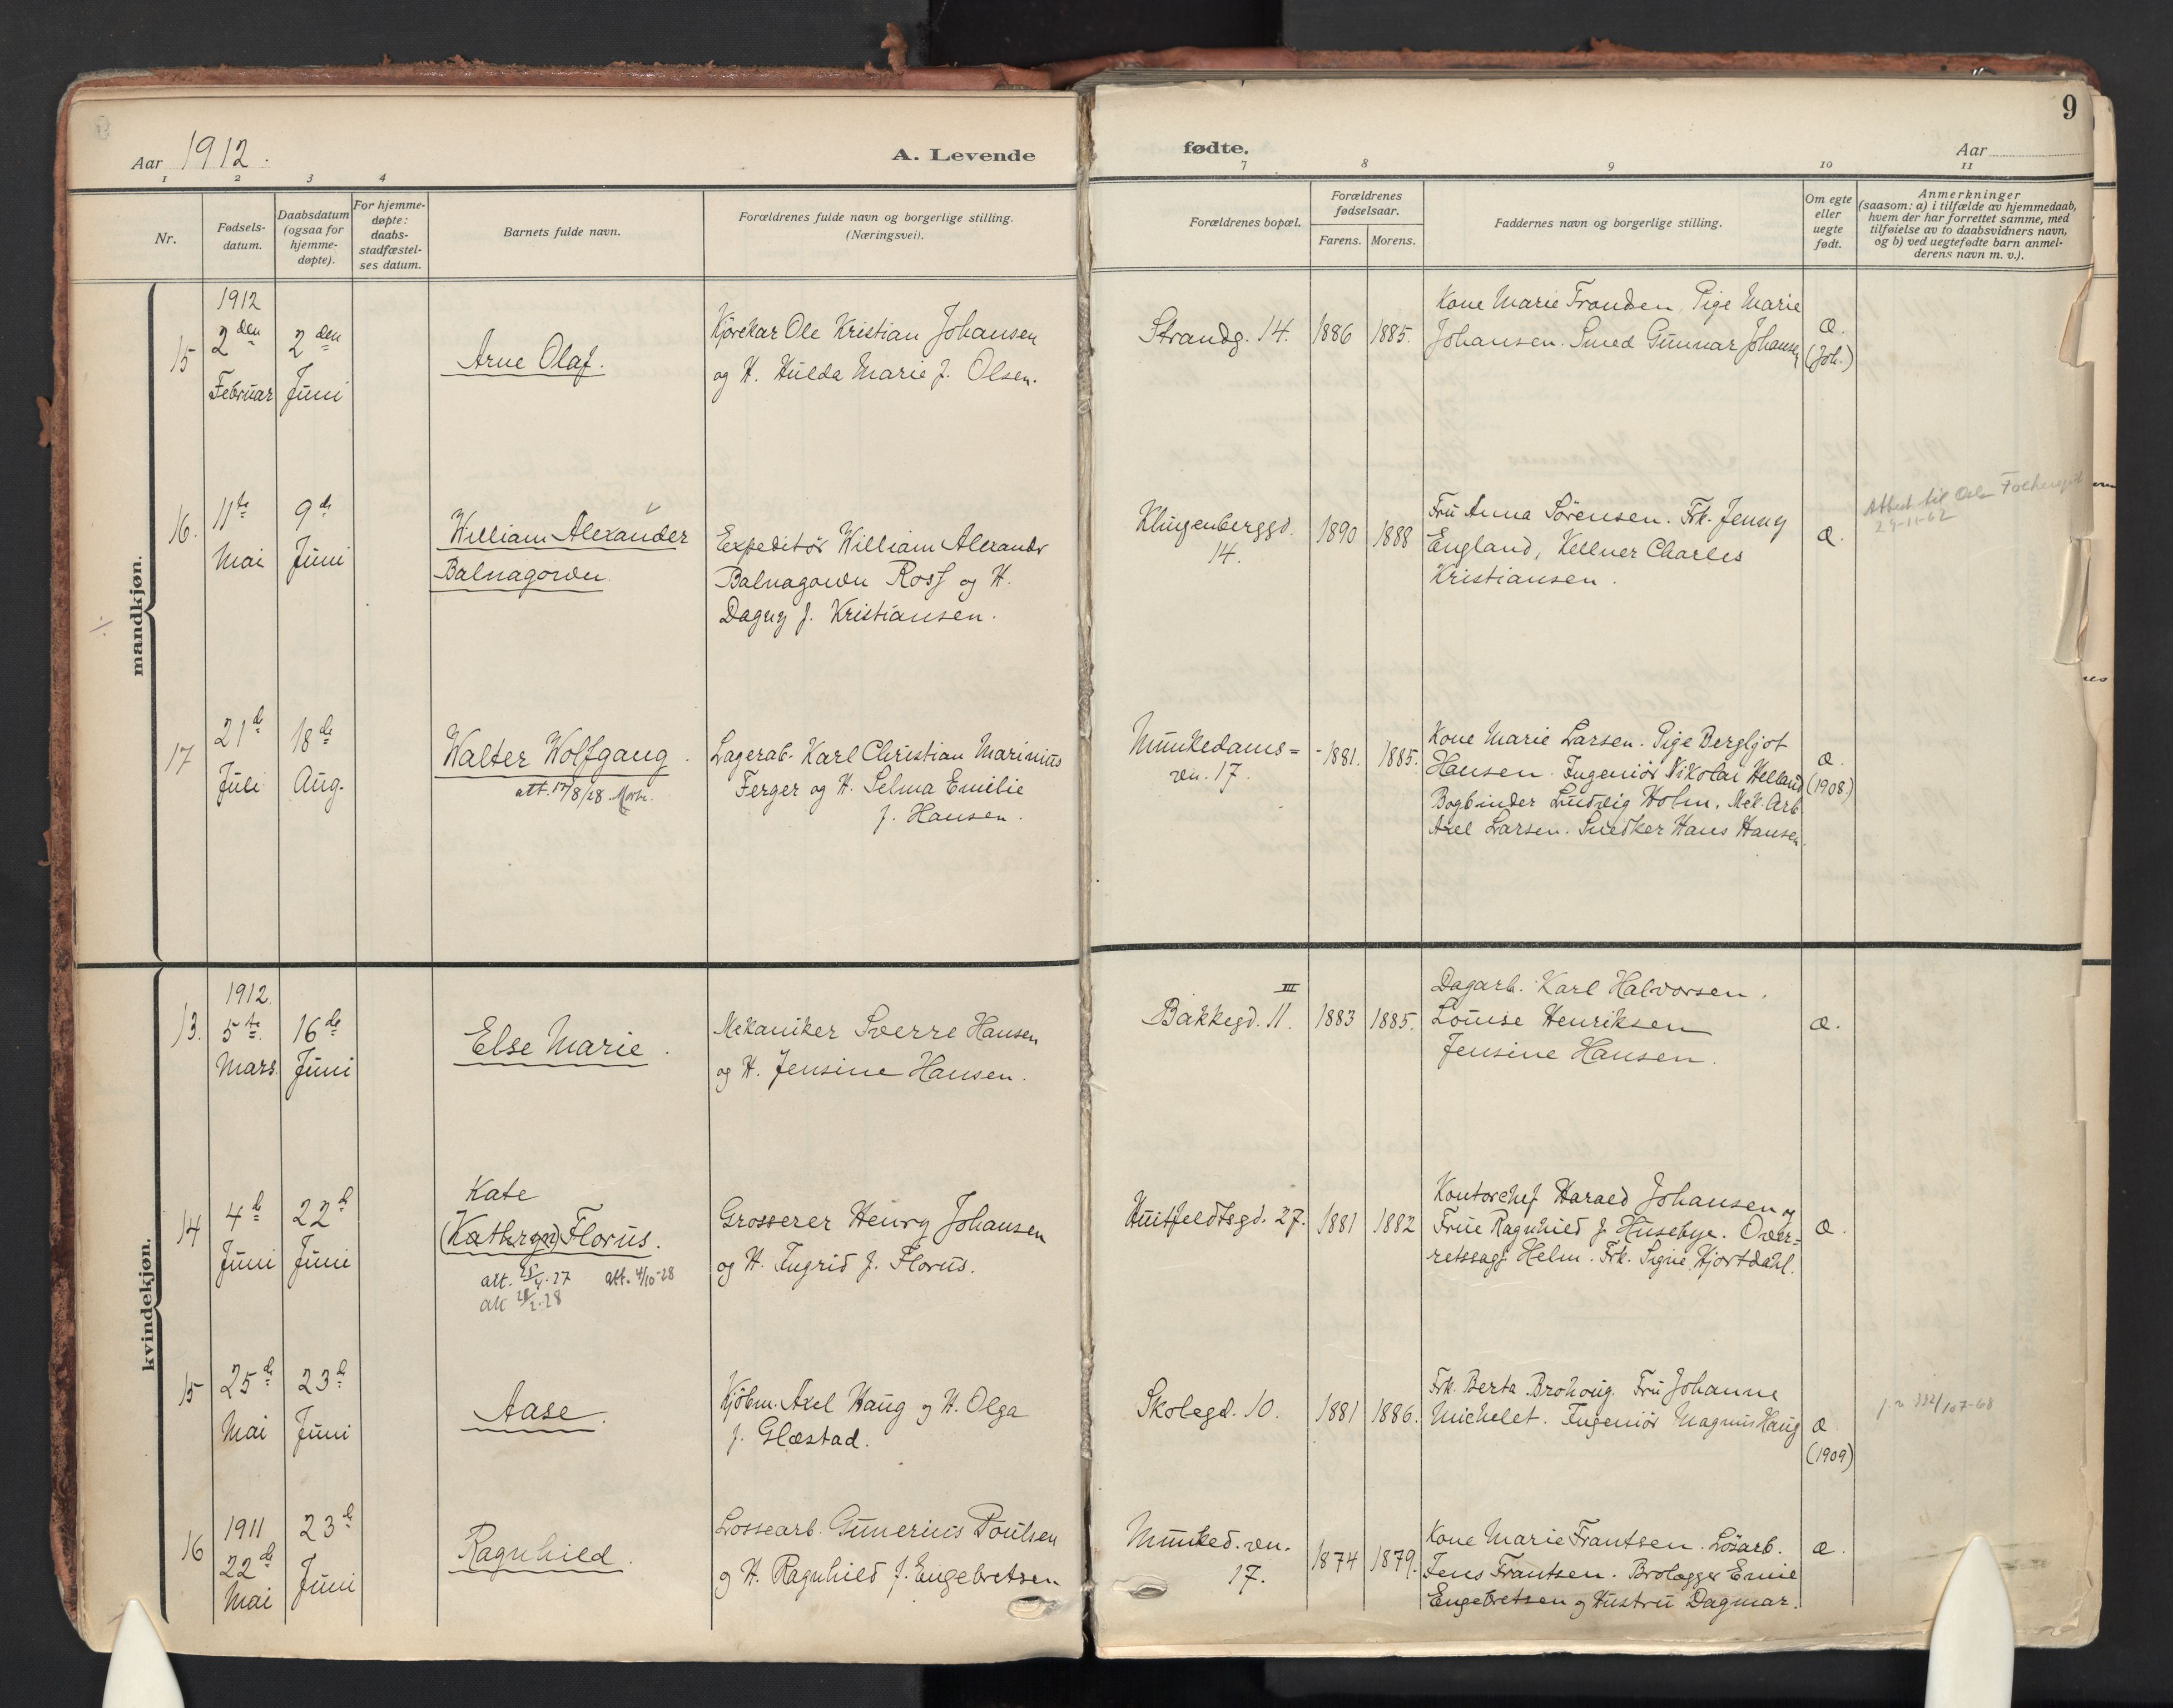 Aar 1912.
A. Levende
1 2 3 4
Nr.
Fødsels-
datum.
Daabsdatum
(ogsaa for
hjemme-
døpte).
For hjemme-
døpte:
daabs-
stadfæstel-
ses datum.
Barnets fulde navn.
Forældrenes fulde navn og borgerlige stilling.
(Næringsvei).
mandkjøn.
15
1912
2den
Februar
2den
Juni
Arne Olaf.
Kjørekar Ole Kristian Johansen
og H. Hulda Marie f. Olsen.
16.
11te
Mai
9de
Juni
William Alexander
Balnagown
Expeditør William Alexandr
Balnagown Ross og H.
Dagny f. Kristiansen.
17
21de
Juli
18de
Aug.
Walter Wolfgang.
att. 17/8/28.
Lagerab. Karl Christian Marinius
Ferger og H. Selma Emilie
f. Hansen.
kvindekjøn.
13.
1912.
5te
Mars
16de
Juni
Else Marie.
Mekaniker Sverre Hansen
og H. Jensine Hansen.
14
4de
Juni
22de
Juni
Kate
(Kathryn) Florus.
att. 25/4.27 att. 4/10-28
att 28/2.28
Grosserer Henry Johansen
og H. Ingrid f. Florus.
15
25de
Mai
23de
Juni
Aase.
Kjøbm. Axel Haug og H. Olga
f. Glæstad.
16
1911
22de
Mai
23de
Juni
Ragnhild.
Lossearb. Gunerius Poulsen
og H. Ragnhild f. Engebretsen
9
fødte.
Aar
7 8 9 10 11
Forældrenes bopæl.
Forældrenes
fødselsaar.
Farens. Morens.
Faddernes navn og borgerlige stilling.
Om egte
eller
uegte
født.
Anmerkninger
(saasom: a) i tilfælde av hjemmedaab,
hvem der har forrettet samme, med
tilføielse av to daabsvidners navn,
og b) ved uegtefødte barn anmel-
derens navn m. v.).
Strandg. 14.
1886
1885.
Kone Marie Frandsen, Pige Marie
Johansen. Smed Gunnar Johansen
æ.
(Joh.)
Klingenberggd.
14.
1890
1888
Fru Anna Sørensen. Frk. Jenny
England, Kellner Charles
Kristiansen.
æ.
Attest til Oslo Folkereg
29-11-62
Munkedams=
vn. 17.
1881.
1885.
Kone Marie Larsen. Pige Bergljot
Hansen. Ingeniør Nikolai Helland
Bogbinder Ludvig Holm. Mek. Arb.
Axel Larsen. Snedker Hans Hansen.
æ.
(1908)
III
Bakkegd. 11.
1883
1885.
Dagarb. Karl Halvorsen.
Louise Henriksen
Jensine Hansen.
æ.
Huitfeldtsgd. 27.
1881
1882
Kontorchef Harald Johansen og
Frue Ragnhild f. Husebye. Over=
retssagf. Helm. Frk. Signe Hjortdahl.
æ.
Skolegd. 10.
1881
1886.
Frk. Berta Brohoug. Fru Johanne
Michelet. Ingeniør Magnus Haug
æ
(1909)
Munked. vn.
17.
1874
1879.
Kone Marie Frantsen. Løsarb.
Jens Frantsen. Brolægger Emil
Engebretsen og Hustru Dagmar.
æ.